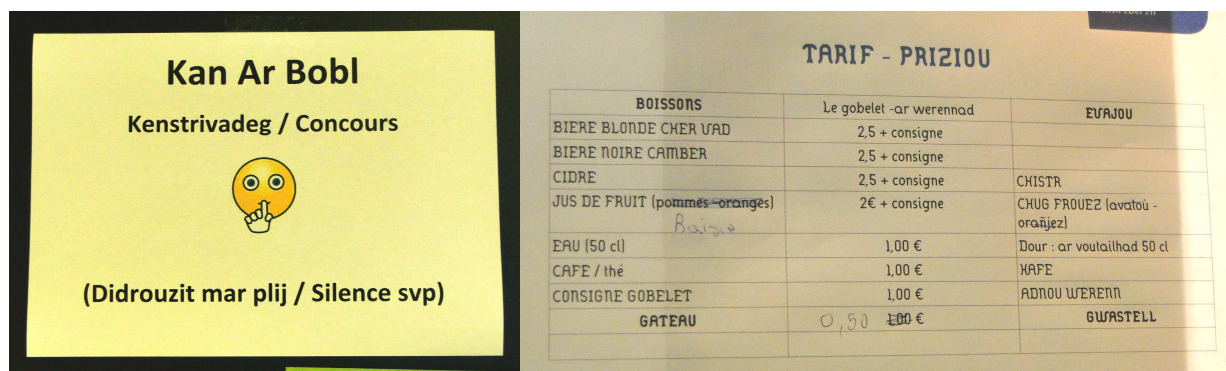 Kan Ar Bobl
Kenstrivadeg / Concours
(Didrouzit mar plij / Silence svp)
TARIF - PRIZIOU
BOISSONS Le gobelet -ar werennad EVAJOU
BIERE BLONDE CHER VAD 2,5 + consigne
BIERE NOIRE CAMBER 2,5 + consigne
CIDRE 2,5 + consigne CHISTR
JUS DE FRUIT (pommes-oranges) 2€ + consigne CHUG FROUEZ (avaloù -
orañjez)
EAU (50 cl) 1,00 € Dour : ar voutailhad 50 cl
CAFE / thé 1,00 € KAFE
CONSIGNE GOBELET 1,00 € ADNOU WERENN
GATEAU 0,50 1,00 € GWASTELL